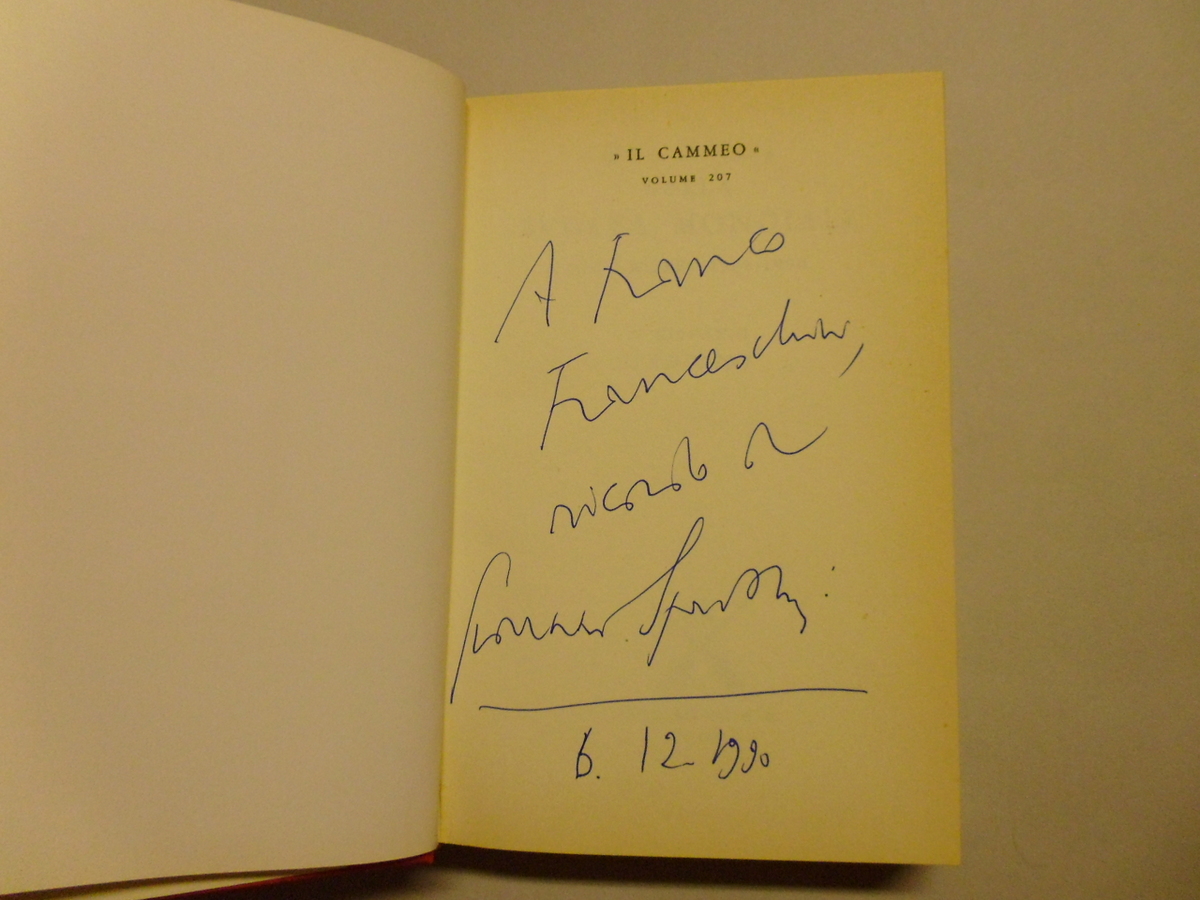 » IL CAMMEO «
VOLUME 207
A Franco
Franceschini,
ricordo di
6. 12. 1990